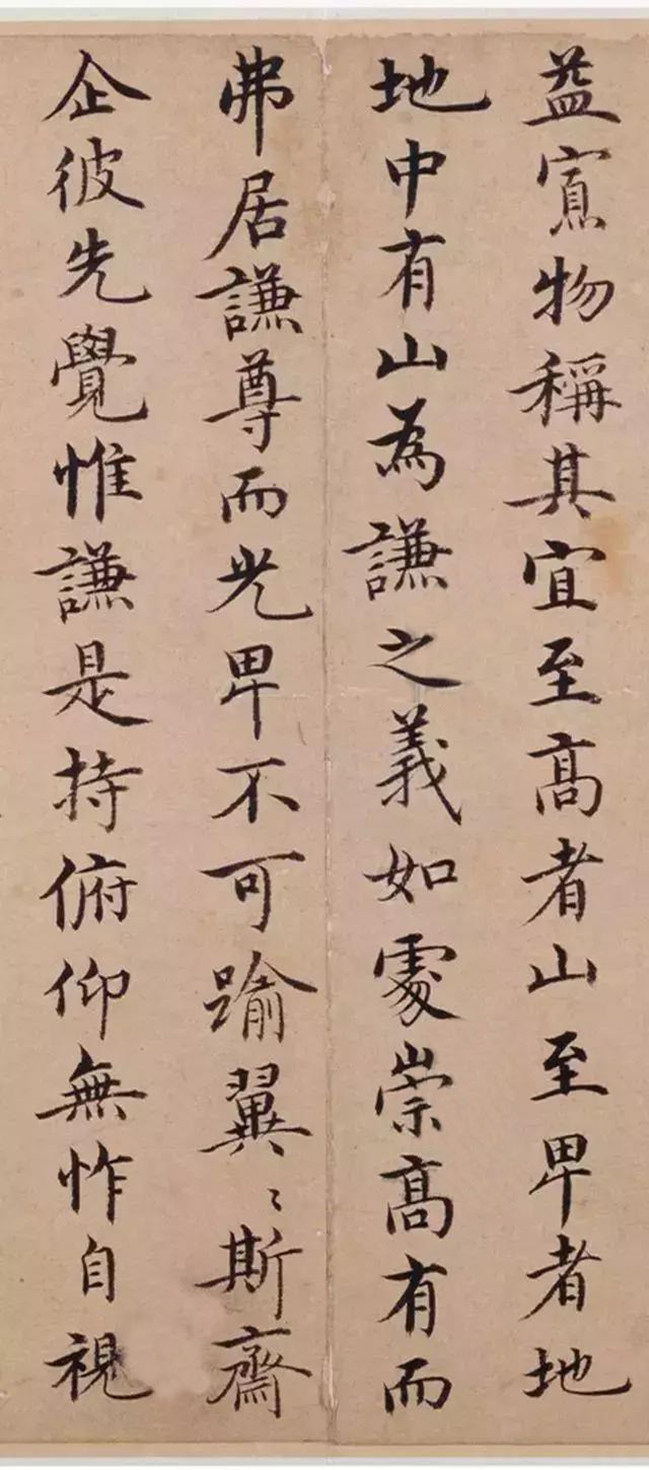 益寡物稱其宜至高者山至卑者地
地中有山為謙之義如處崇高有而
弗居謙尊而光卑不可踰翼〻斯齋
企彼先覺惟謙是持俯仰無怍自視